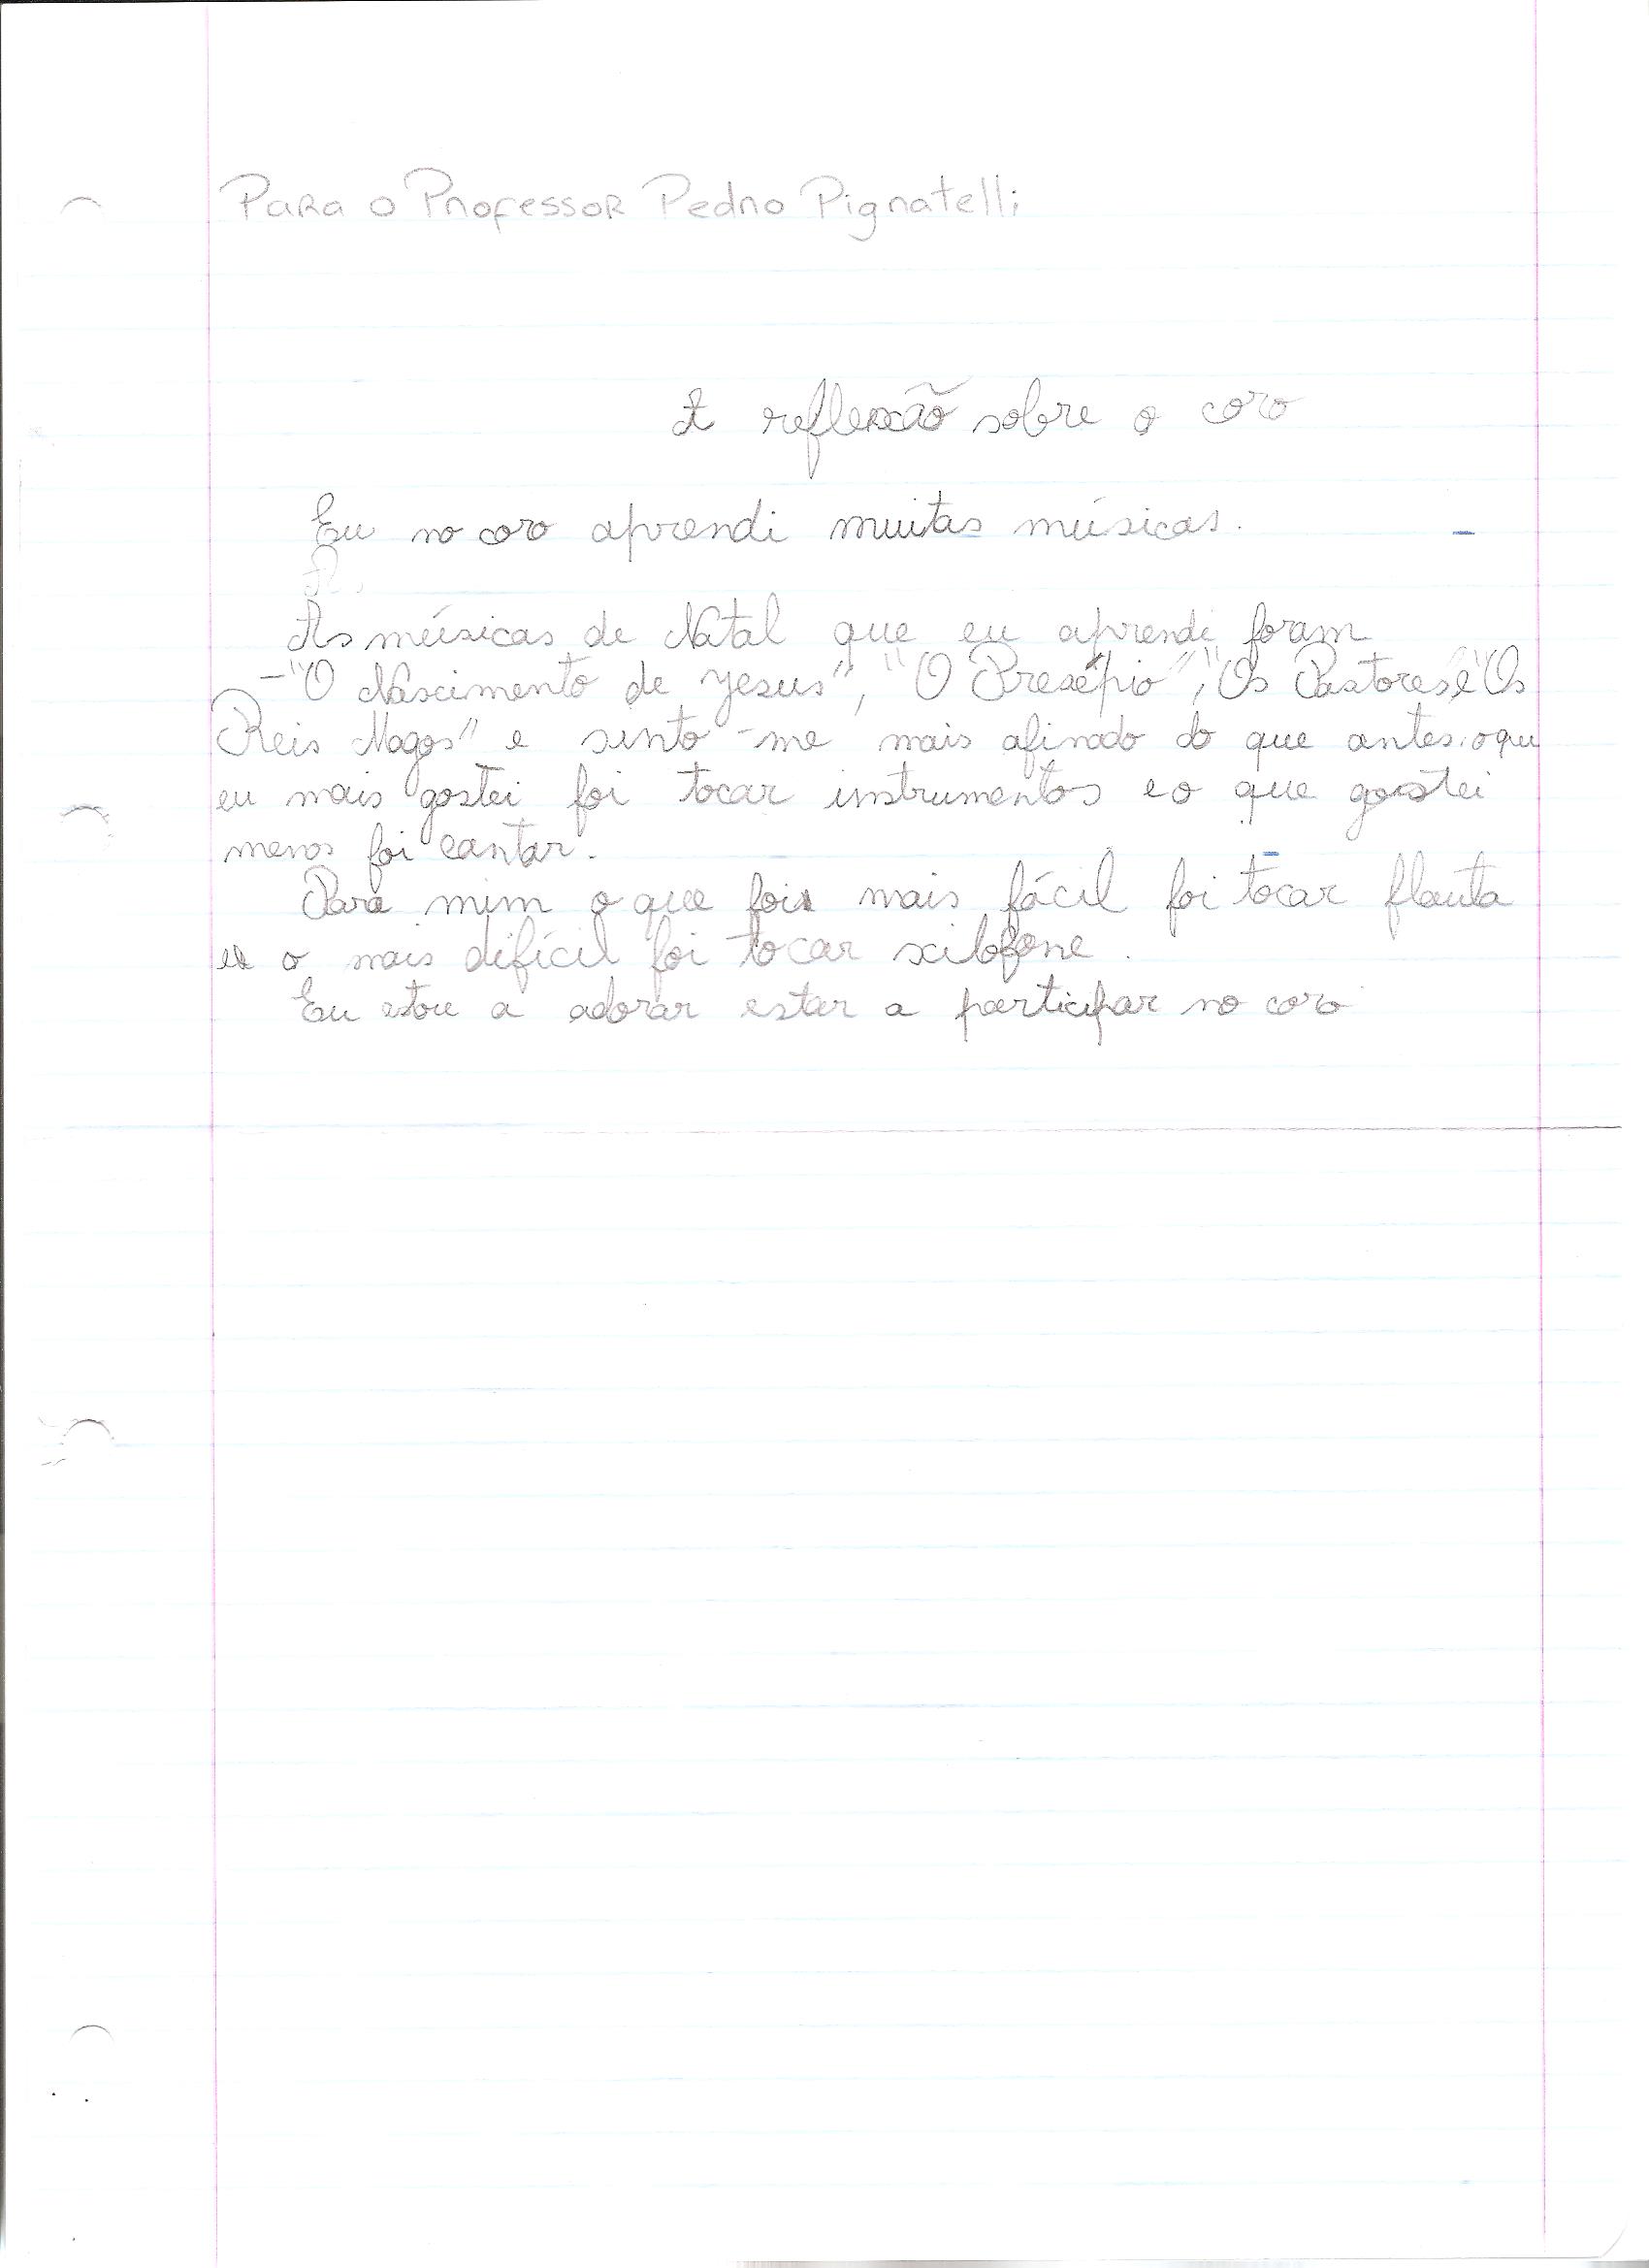 Para o Professor Pedro Pignatelli
A reflexão sobre o coro
Eu no coro aprendi muitas músicas.
As músicas de Natal que eu aprendi foram
-"O Nascimento de Jesus", "O Presépio", "Os Pastores" e "Os
Reis Magos" e sinto-me mais afinado do que antes. o que
eu mais gostei foi tocar instrumentos e o que gostei
menos foi cantar.
Para mim o que foi mais fácil foi tocar flauta
e o mais difícil foi tocar xilofone.
Eu estou a adorar estar a participar no coro